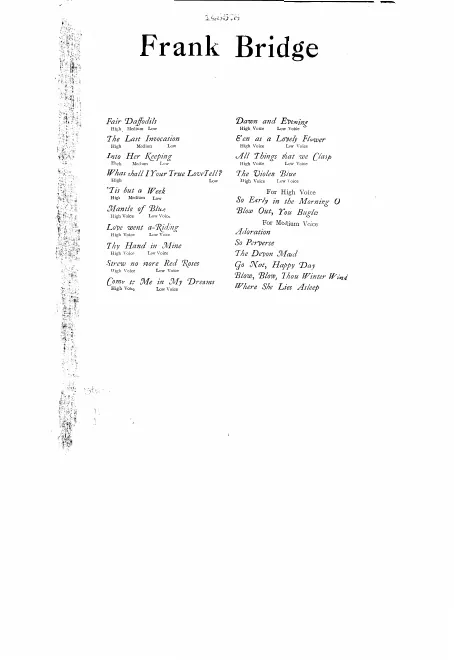 Frank Bridge
Fair Daffodils
High Medium Low
The Last Invocation
High Medium Low
Into Her Keeping
High Medium Low
What shall I Your True Love Tell?
High Low
'Tis but a Week
High Medium Low
Mantle of Blue
High Voice Low Voice
Love went a-Riding
High Voice Low Voice
Thy Hand in Mine
High Voice Low Voice
Strew no more Red Roses
High Voice Low Voice
Come to Me in My Dreams
High Voice Low Voice
Dawn and Evening
High Voice Low Voice
E'en as a Lovely Flower
High Voice Low Voice
All Things that we Clasp
High Voice Low Voice
The Violets Blue
High Voice Low Voice
For High Voice
So Early in the Morning O
Blow Out, You Bugles
For Medium Voice
Adoration
So Perverse
The Devon Maid
Go Not, Happy Day
Blow, Blow, Thou Winter Wind
Where She Lies Asleep